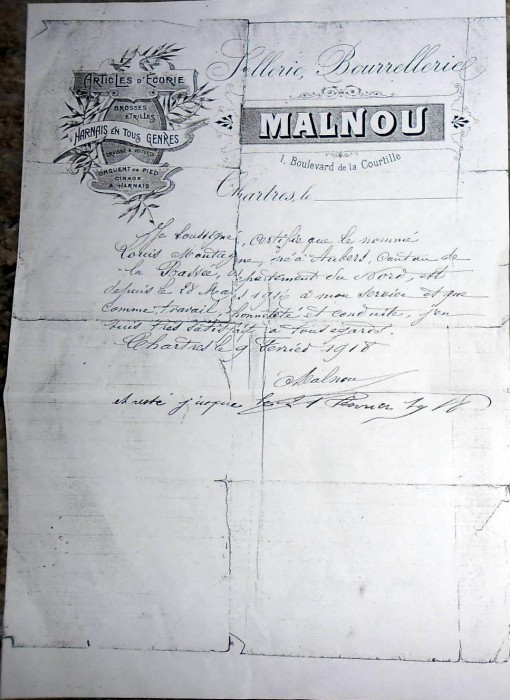 ARTICLES D'ÉCURIE
BROSSES
ÉTRILLES
HARNAIS EN TOUS GENRES
GRAISSE À VOITURES
ONGUENT DE PIED
CIRAGE
À HARNAIS
Sellerie, Bourrellerie
MALNOU
1, Boulevard de la Courtille
Chartres, le
Je soussigné, certifie que le nommé
Louis Montagne, né à Aubers, Canton de
la Bassée, département du Nord, est
depuis le 18 Mars 1916 à mon service et que
comme travail, honnêteté et conduite, j'en
suis très satisfait à tous égards.
Chartres le 9 Février 1918
Malnou
et resté jusque le 21 Février 1918